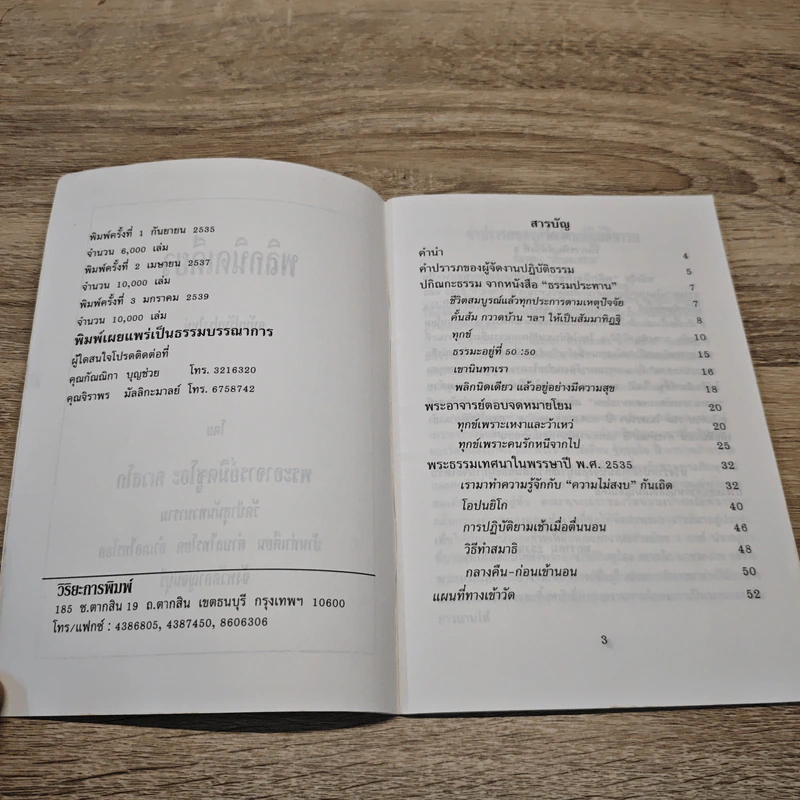 พิมพ์ครั้งที่ 1 กันยายน 2535
จำนวน 6,000 เล่ม
พิมพ์ครั้งที่ 2 เมษายน 2537
จำนวน 10,000 เล่ม
พิมพ์ครั้งที่ 3 มกราคม 2539
จำนวน 10,000 เล่ม
พิมพ์เผยแพร่เป็นธรรมบรรณาการ
ผู้ใดสนใจโปรดติดต่อที่
คุณกัณณิกา บุญช่วย โทร. 3216320
คุณจิราพร มัลลิกะมาลย์ โทร. 6758742
วิริยะการพิมพ์
185 ซ.ตากสิน 19 ถ.ตากสิน เขตธนบุรี กรุงเทพฯ 10600
โทร/แฟกซ์ : 4386805, 4387450, 8606306
สารบัญ
คำนำ 4
คำปรารภของผู้จัดงานปฏิบัติธรรม 5
ปกิณกะธรรม จากหนังสือ “ธรรมประทาน” 7
ชีวิตสมบูรณ์แล้วทุกประการตามเหตุปัจจัย 7
คั้นส้ม กวาดบ้าน ฯลฯ ให้เป็นสัมมาทิฏฐิ 8
ทุกข์ 10
ธรรมะอยู่ที่ 50 :50 15
เขานินทาเรา 16
พลิกนิดเดียว แล้วอยู่อย่างมีความสุข 18
พระอาจารย์ตอบจดหมายโยม 20
ทุกข์เพราะเหงาและว้าเหว่ 20
ทุกข์เพราะคนรักหนีจากไป 25
พระธรรมเทศนาในพรรษาปี พ.ศ. 2535 32
เรามาทำความรู้จักกับ “ความไม่สงบ” กันเถิด 32
โอปนยิโก 40
การปฏิบัติยามเช้าเมื่อตื่นนอน 46
วิธีทำสมาธิ 48
กลางคืน-ก่อนเข้านอน 50
แผนที่ทางเข้าวัด 52
3